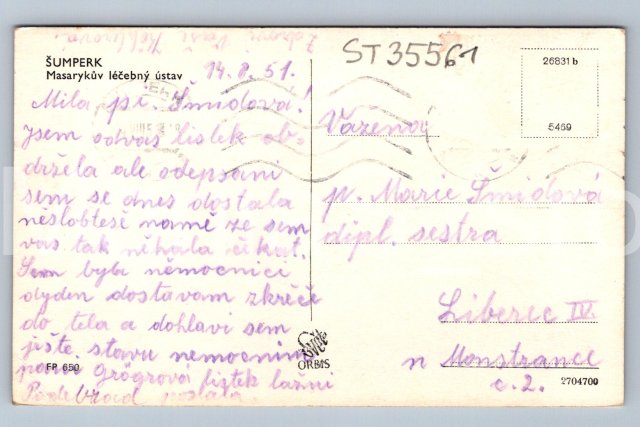 ŠUMPERK
Masarykův léčebný ústav
14.8.51.
Milá pí. Šmidová!
Jsem odvás lístek ob-
držela ale odepsani
sem se dnes dostala
nèslobtesè namè ze sem
vas tak někala čekat.
Sem byla němocnici
dyden dostavam zkrèče
do tela a dohlavi sem
jeste stavu nemocnim
pani Grögrová listek lazni
Poděbrad poslala
FP 650
ST35561
26831 b
5469
Vazená
p. Marie Šmidová
dipl. sestra
Liberec IV
n Monstrance
c. 2.
ORBIS
2704700